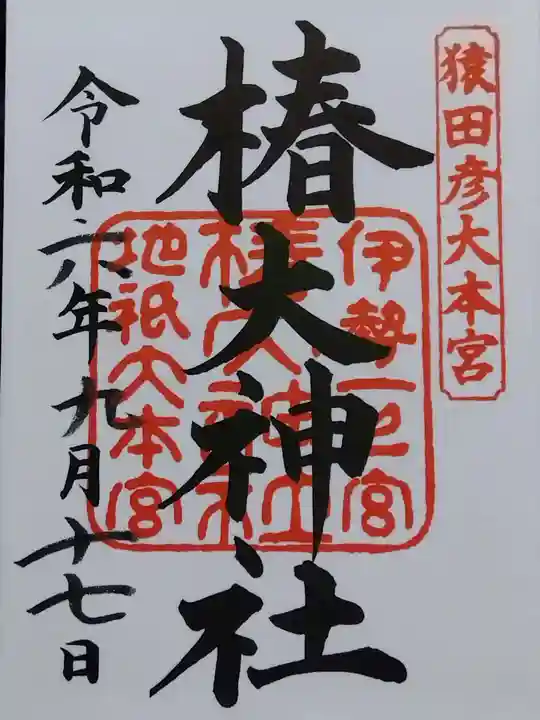 猿田彦大本宮
椿大神社
伊勢一之宮
椿大神社
地祇大本宮
令和六年九月十七日